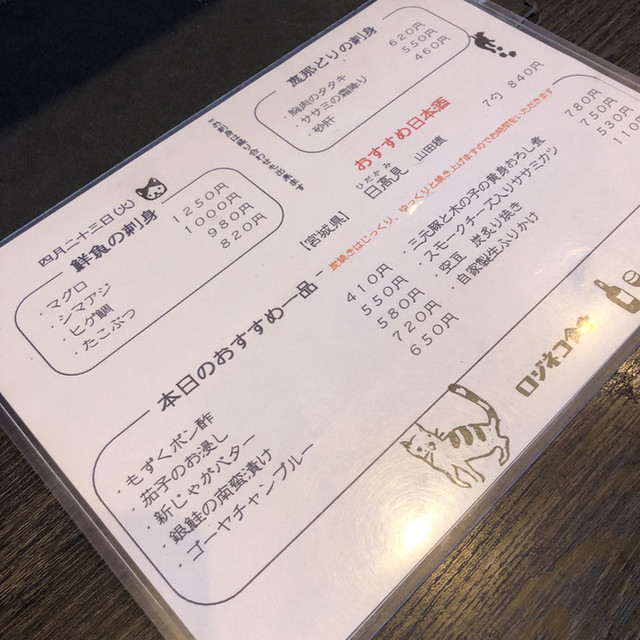 四月二十三日(火)
鮮魚の刺身
・マグロ 1250円
・シマアジ 1000円
・ヒゲ鯛 980円
・たこぶつ 820円
恵那どりの刺身
・胸肉のタタキ 620円
・ササミの霜降り 550円
・砂肝 460円
おすすめ日本酒
ひたかみ
[宮城県] 日高見 山田穂 7勺 840円
炭焼きはじっくり、ゆっくりと焼き上げますのでお時間をいただきます
本日のおすすめ一品
・もずくポン酢 410円
・茄子のお浸し 550円
・新じゃがバター 580円
・銀鮭の南蛮漬け 720円
・ゴーヤチャンプルー 650円
・三元豚と木の子の黄身おろし煮 780円
・スモークチーズ入りササミカツ 750円
・空豆 炭炙り焼き 530円
・自家製生ふりかけ 110
ロジネコ食堂